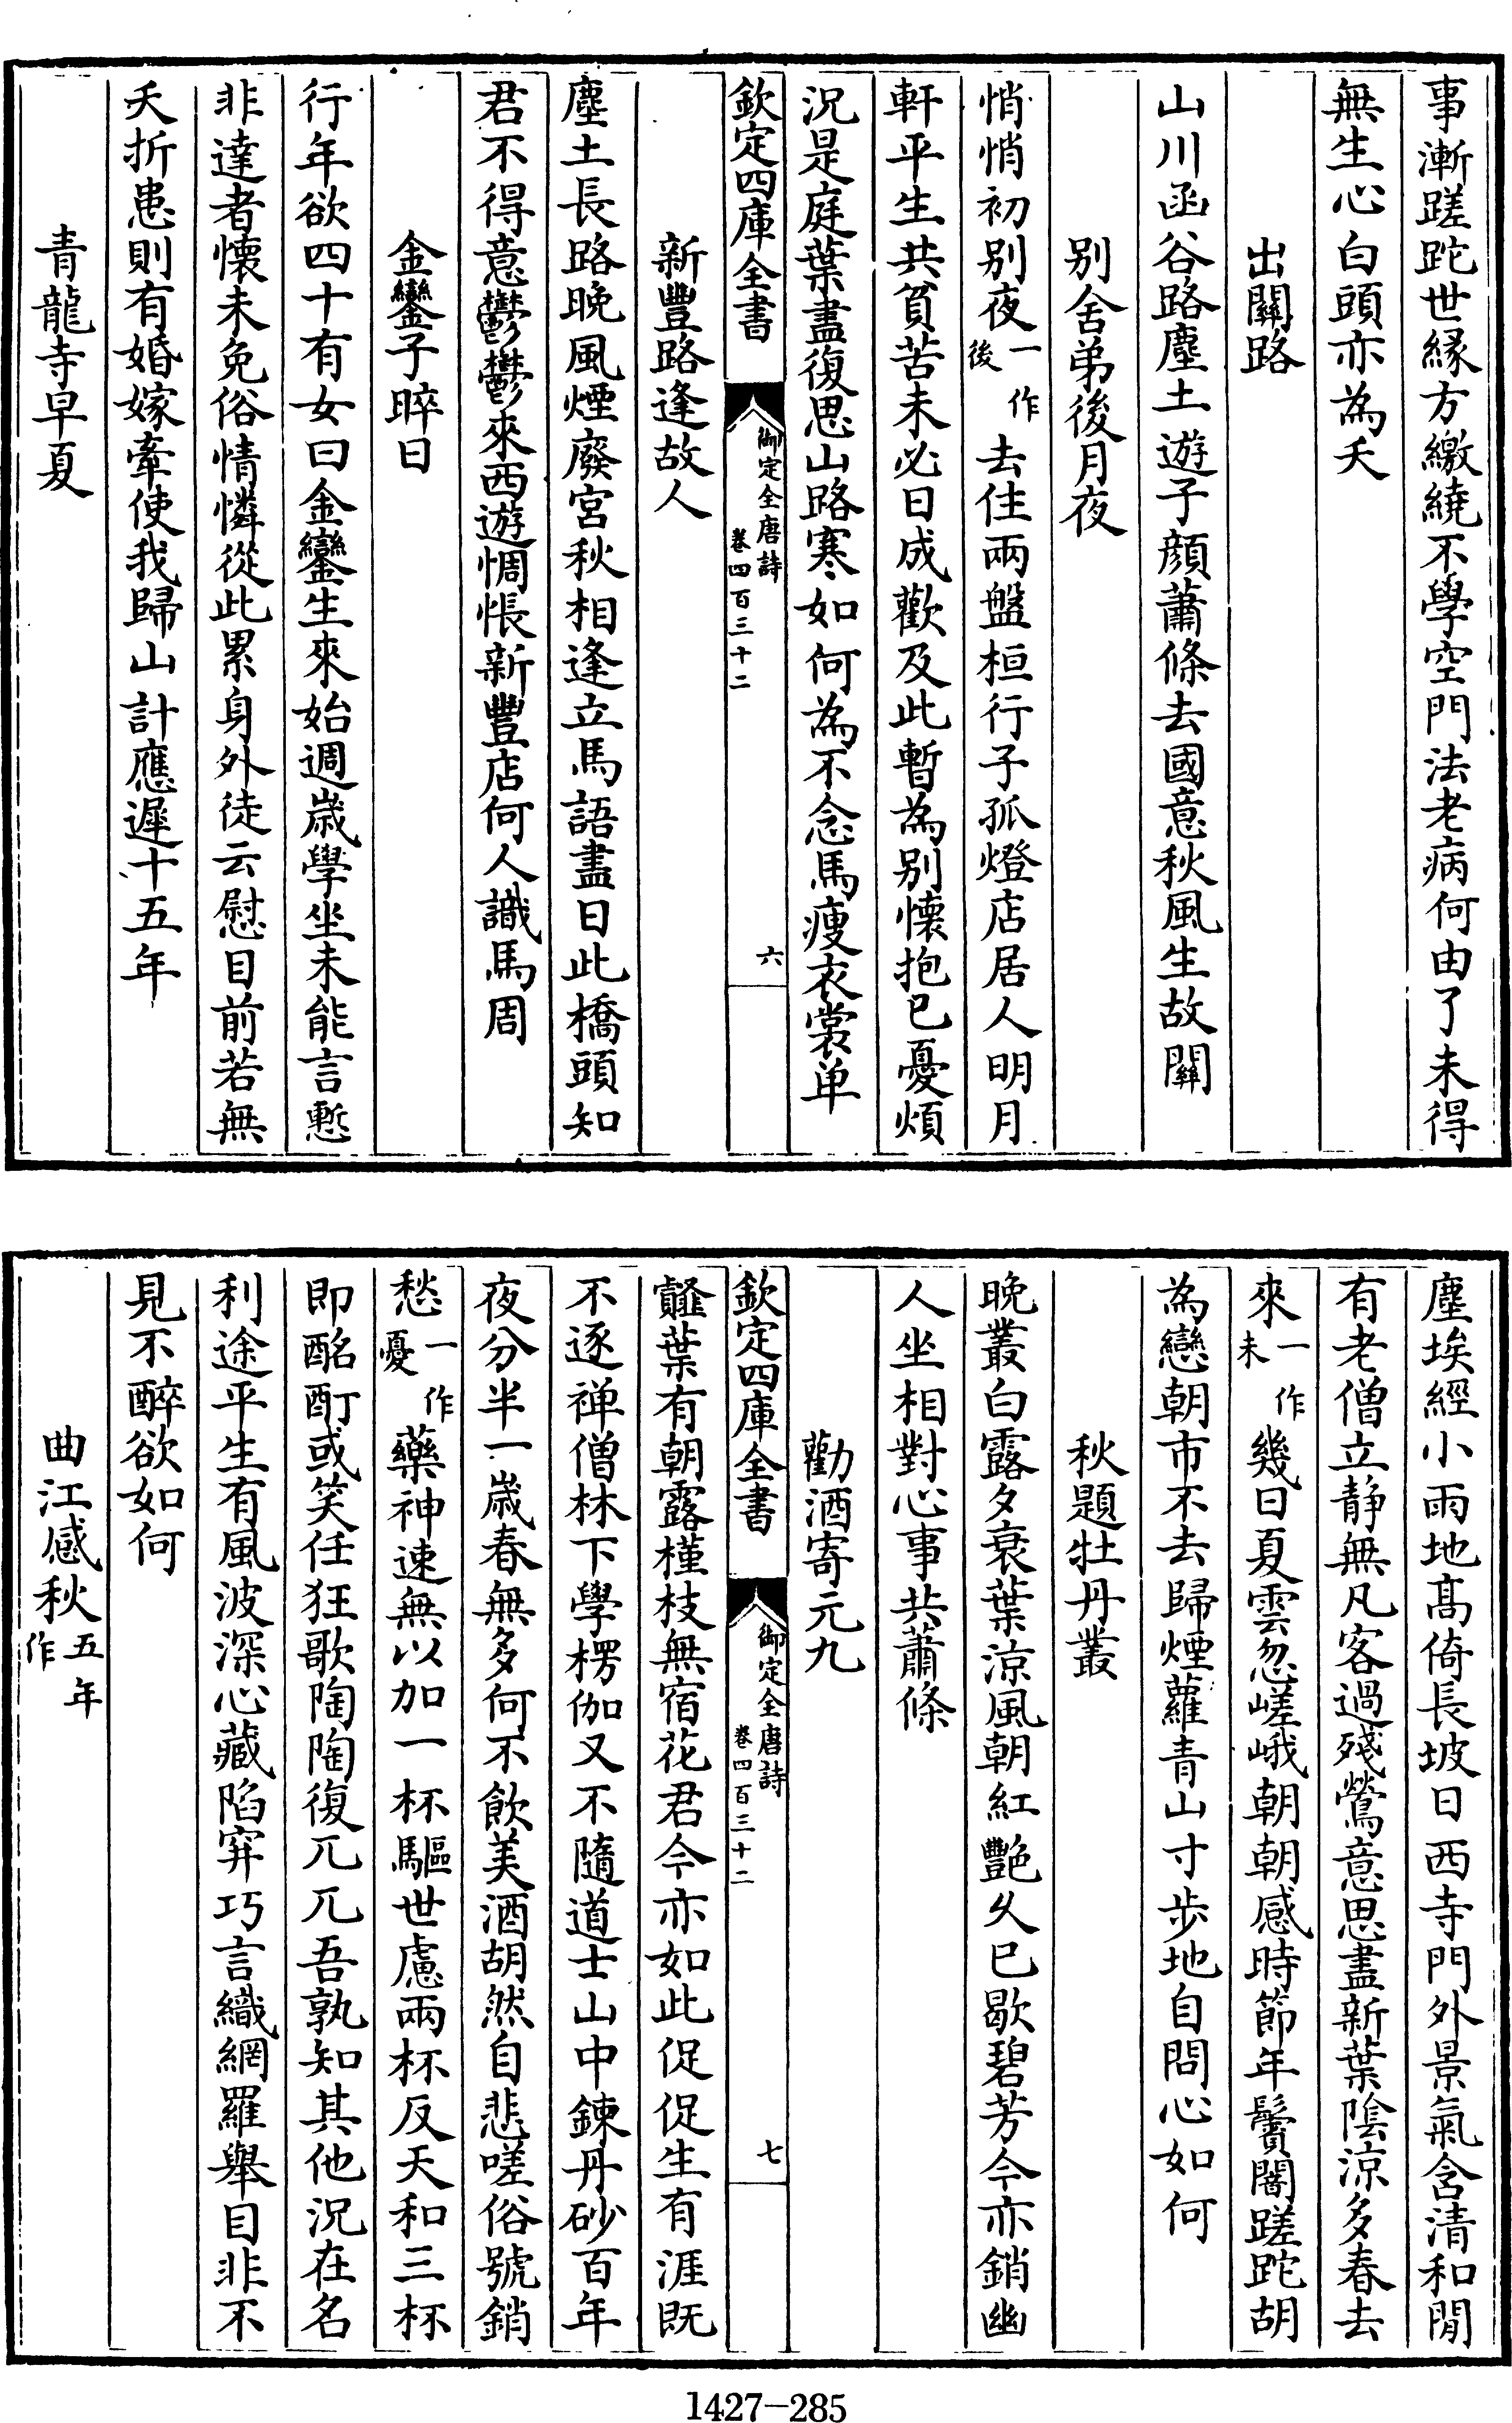 事漸蹉跎世緣方繳繞不學空門法老病何由了未得
無生心白頭亦為夭
出關路
山川函谷路塵土遊子顔蕭條去國意秋風生故關
別舍弟後月夜
悄悄初別夜一作後去住兩盤桓行子孤燈店居人明月
軒平生共貧苦未必日成歡及此暫為別懷抱已憂煩
況是庭葉盡復思山路寒如何為不念馬瘦衣裳单
欽定四庫全書 御定全唐詩 卷四百三十二 六
新豐路逢故人
塵土長路晚風煙廢宮秋相逢立馬語盡日此橋頭知
君不得意鬱鬱來西遊惆悵新豐店何人識馬周
金鑾子晬日
行年欲四十有女曰金鑾生來始週歳學坐未能言慙
非達者懷未免俗情憐從此累身外徒云慰目前若無
夭折患則有婚嫁牽使我歸山計應遲十五年
青龍寺早夏
塵埃經小雨地髙倚長坡日西寺門外景氣含清和閒
有老僧立静無凡客過殘鶯意思盡新葉陰涼多春去
來一作未幾日夏雲忽嵯峨朝朝感時節年鬢闇蹉跎胡
為戀朝市不去歸煙蘿青山寸步地自問心如何
秋題牡丹叢
晚叢白露夕衰葉涼風朝紅艷久已歇碧芳今亦銷幽
人坐相對心事共蕭條
勸酒寄元九
欽定四庫全書 御定全唐詩 卷四百三十二 七
薤葉有朝露槿枝無宿花君今亦如此促促生有涯既
不逐禅僧林下學楞伽又不隨道士山中鍊丹砂百年
夜分半一歳春無多何不飲美酒胡然自悲嗟俗號銷
愁一作憂藥神速無以加一杯驅世慮兩杯反天和三杯
即酩酊或笑任狂歌陶陶復兀兀吾孰知其他況在名
利途平生有風波深心藏陷穽巧言織網羅舉目非不
見不醉欲如何
曲江感秋五年作
1427-285